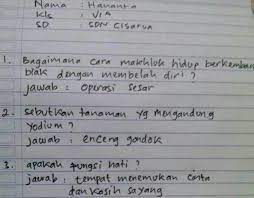 Nama : Hananta
Kls : VIA
SD : SDN Cisarua
1. Bagaimana cara makhluk hidup berkemban
biak dengan membelah diri ?
jawab : operasi sesar
2. Sebutkan tanaman yg mengandung
yodium ?
jawab : enceng gondok
3. apakah fungsi hati ?
jawab : tempat menemukan cinta
dan kasih sayang